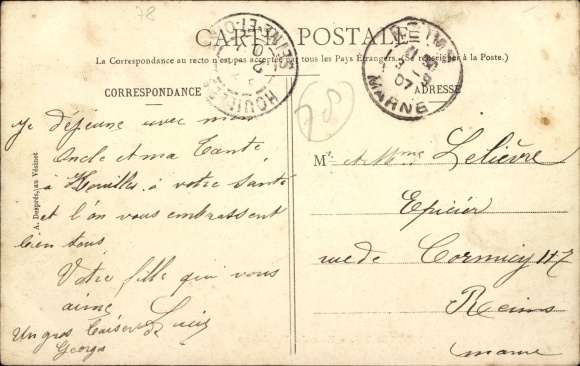 78
CARTE POSTALE
La Correspondance au recto n'est pas acceptée par tous les Pays Étrangers. (Se renseigner à la Poste.)
CORRESPONDANCE
ADRESSE
HOUILLES
SEINE-ET-O
REIMS
MARNE
07
78
A. Després, au Vésinet
Je déjeune avec mon
Oncle et ma Tante
à Houilles, à votre Santé
et l'on vous embrassent
bien tous
Votre fille qui vous
aime
Lucie
Un gros baiser de
Georges
M. et Mme Lelièvre
Epicier
rue de Cormicy 117
Reims
Marne